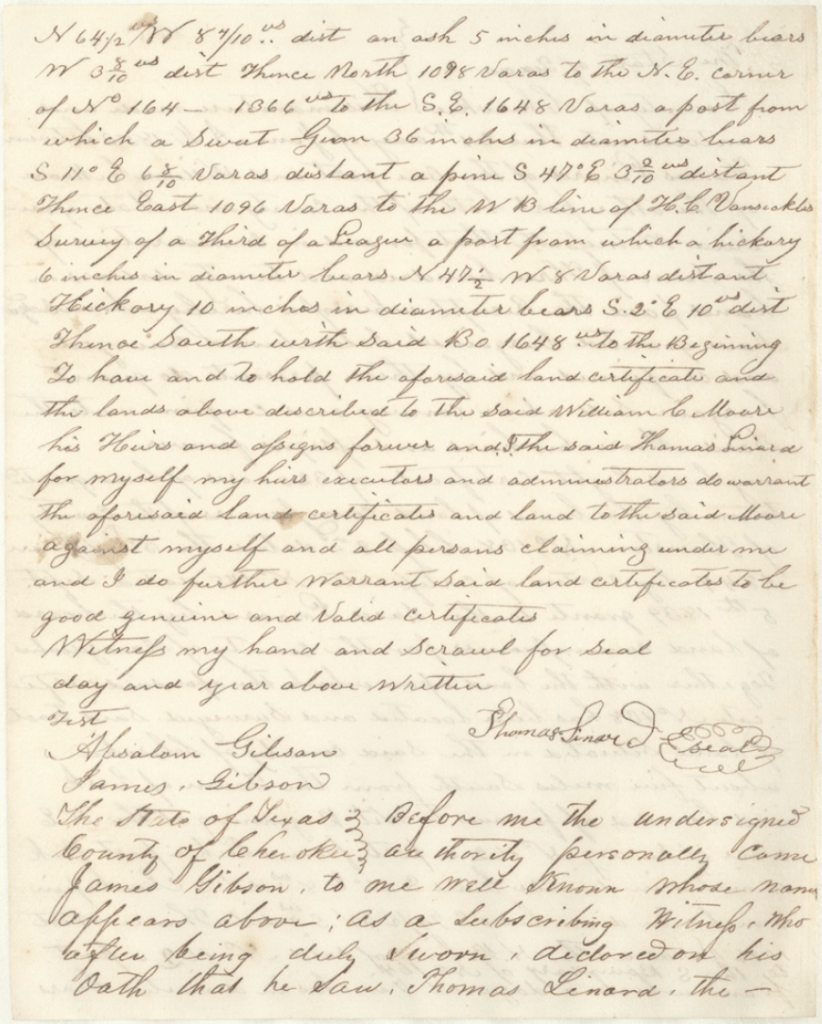 N 64 1/2 W 8 7/10 vs dist an ash 5 inches in diameter bears
W 3 8/10 vs dist Thence North 1098 Varas to the N. E. corner
of No 164 – 1366 vs to the S. E. 1648 Varas a post from
which a Sweet Gum 36 inches in diameter bears
S 11° E 6 8/10 Varas distant a pine S 47° E 3 2/10 vs distant
Thence East 1096 Varas to the W B line of H. C Vansickles
Survey of a Third of a League a post from which a hickory
6 inches in diameter bears N 47 1/2 W 8 Varas distant
Hickory 10 inches in diameter bears S. 2° E 10 vs dist
Thence South with said Bo 1648 vs to the Beginning
To have and to hold the aforesaid land certificate and
the lands above described to the said William C Moore
his Heirs and assigns forever and I the said Thomas Linard
for myself my hiers executors and administrators do warrant
the aforesaid land certificates and land to the said Moore
against myself and all persons claiming under me
and I do further Warrant said land certificates to be
good genuine and Valid certificates
Witness my hand and scrawl for seal
day and year above written
Test
Thomas Linard (seal)
Absalom Gibson
James. Gibson
The State of Texas } Before me the undersigned
County of Cherokee } authority personally came
James Gibson, to me well Known whose name
appears above; as a Subscribing Witness, who
after being duly Sworn, declared on his
Oath that he Saw, Thomas Linard, the –